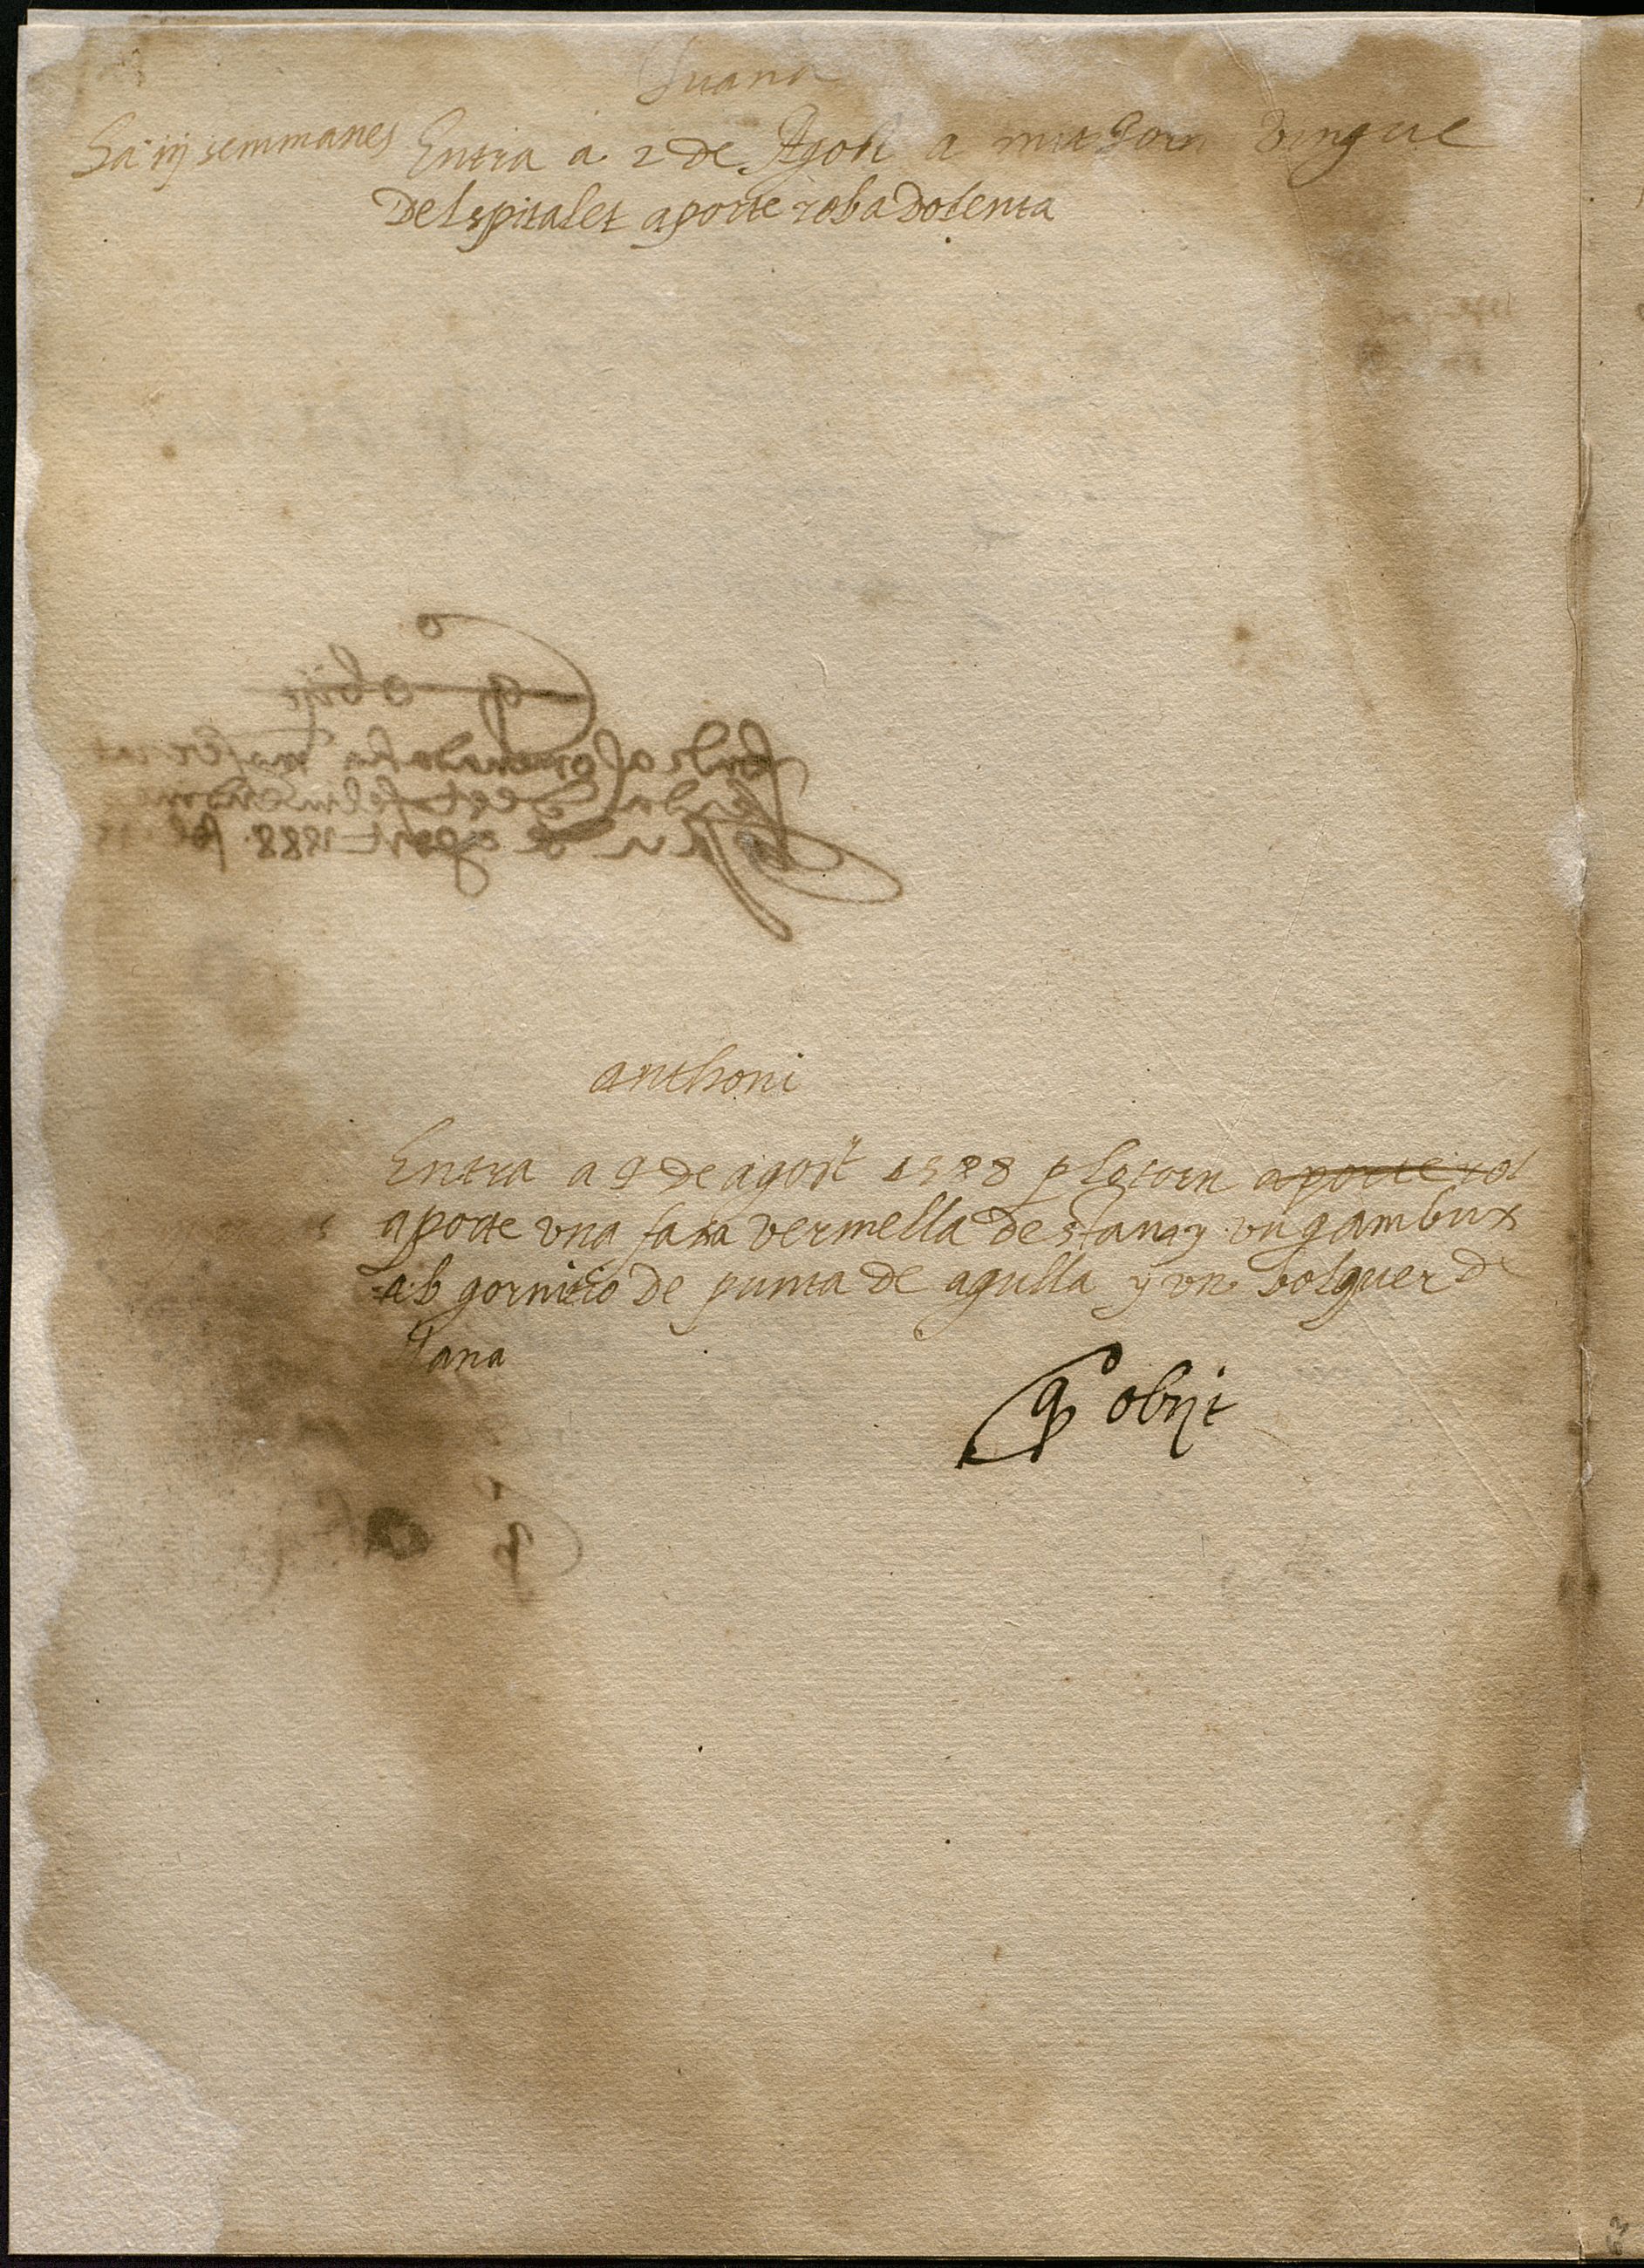 Juana
Ha iij semmanes Entra a 2 de Agost a mit Jorn vingue
del spitalet aporte roba dolenta
anthoni
Entra a 9 de agost 1588 p lo torn aporte rol
aporte vna faxa vermella de stam y vn gambux
ab gornitio de punta de agulla y vn bolquer de
lana
obijt